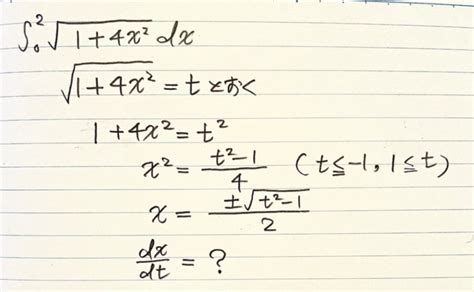 ∫₀² √(1+4x²) dx
√(1+4x²) = t とおく
1+4x² = t²
x² = (t²-1)/4 (t≦-1, 1≦t)
x = ±√(t²-1)/2
dx/dt = ?